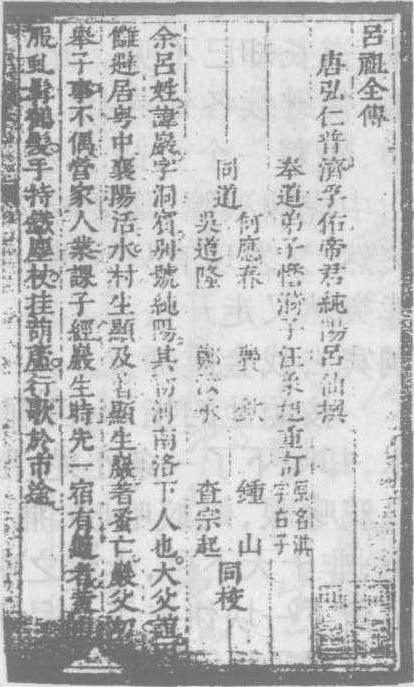 呂祖全傳
唐弘仁普濟孚佑帝君純陽呂仙撰
奉道弟子憺漪子汪象旭重訂 原名淇 字右子
同道 何應春 鍾山
吳道隆 查宗起 同校
余呂姓諱巖字洞賓別號純陽其初河南洛下人也大父誼
避居粵中襄陽活水村生顯及晋顯生巖者蚤亡巖父初
舉子事不偶營家人業課子經巖生時先一宿有
服虬髯鶴髮手持鐵塵杖挂葫蘆行歌於市途